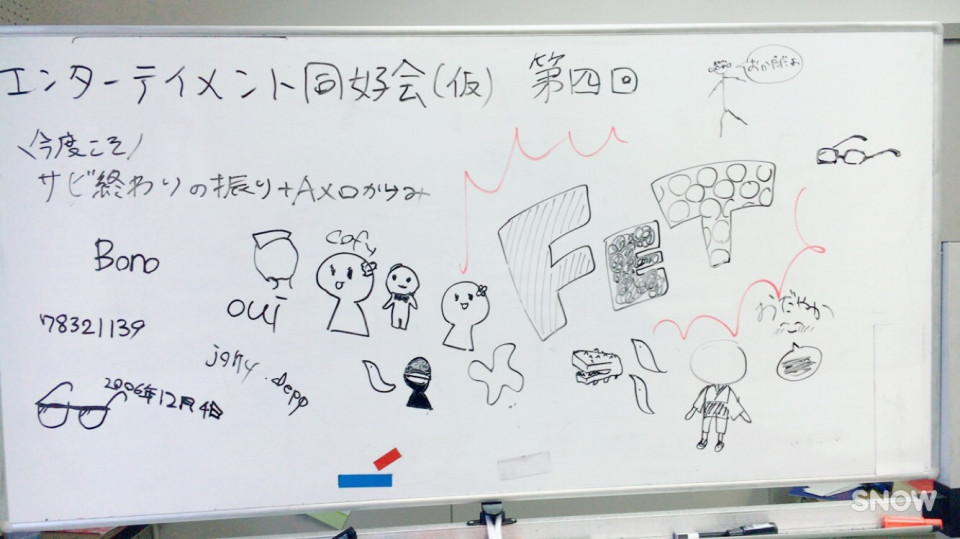 エンターテイメント同好会(仮) 第四回
おかだだぁ
\今度こそ/
サビ終わりの振り+Aメロからみ
Bono
cofy
oui
FET
78321139
おだやか
jony.depp
2006年12月4日
SNOW